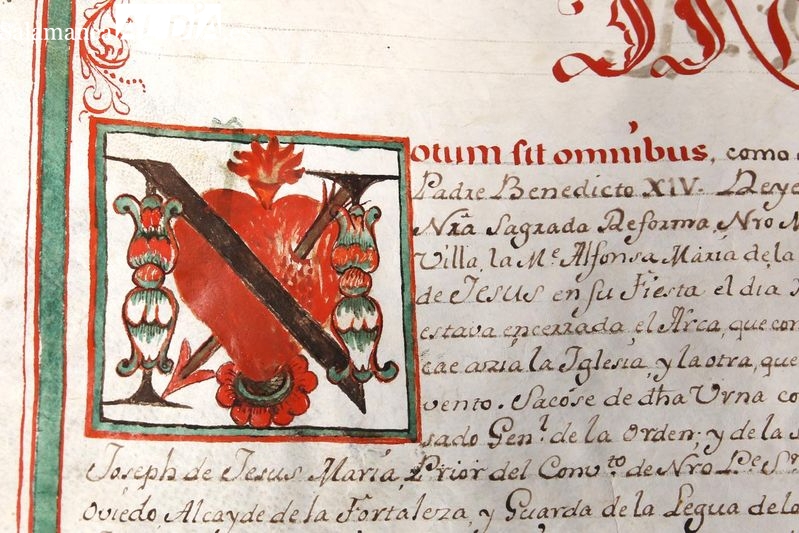 Notum sit omnibus, como
Padre Benedicto XIV. Deye
Nrã Sagrada Reforma, Nro M
Villa, la Mᵉ Alfonsa Maria de la
de JESUS en su Fiesta el dia
estava encerrada el Arca, que con
cae azia la Iglesia, y la otra, que
vento. Sacóse de dha Urna co
sado Genˡ. de la Orden; y de la
Joseph de Jesus Maria, Prior del Convᵗᵒ de Nro Pᵉ S
Oviedo, Alcayde de la Fortaleza, y Guarda de la Legua de lo